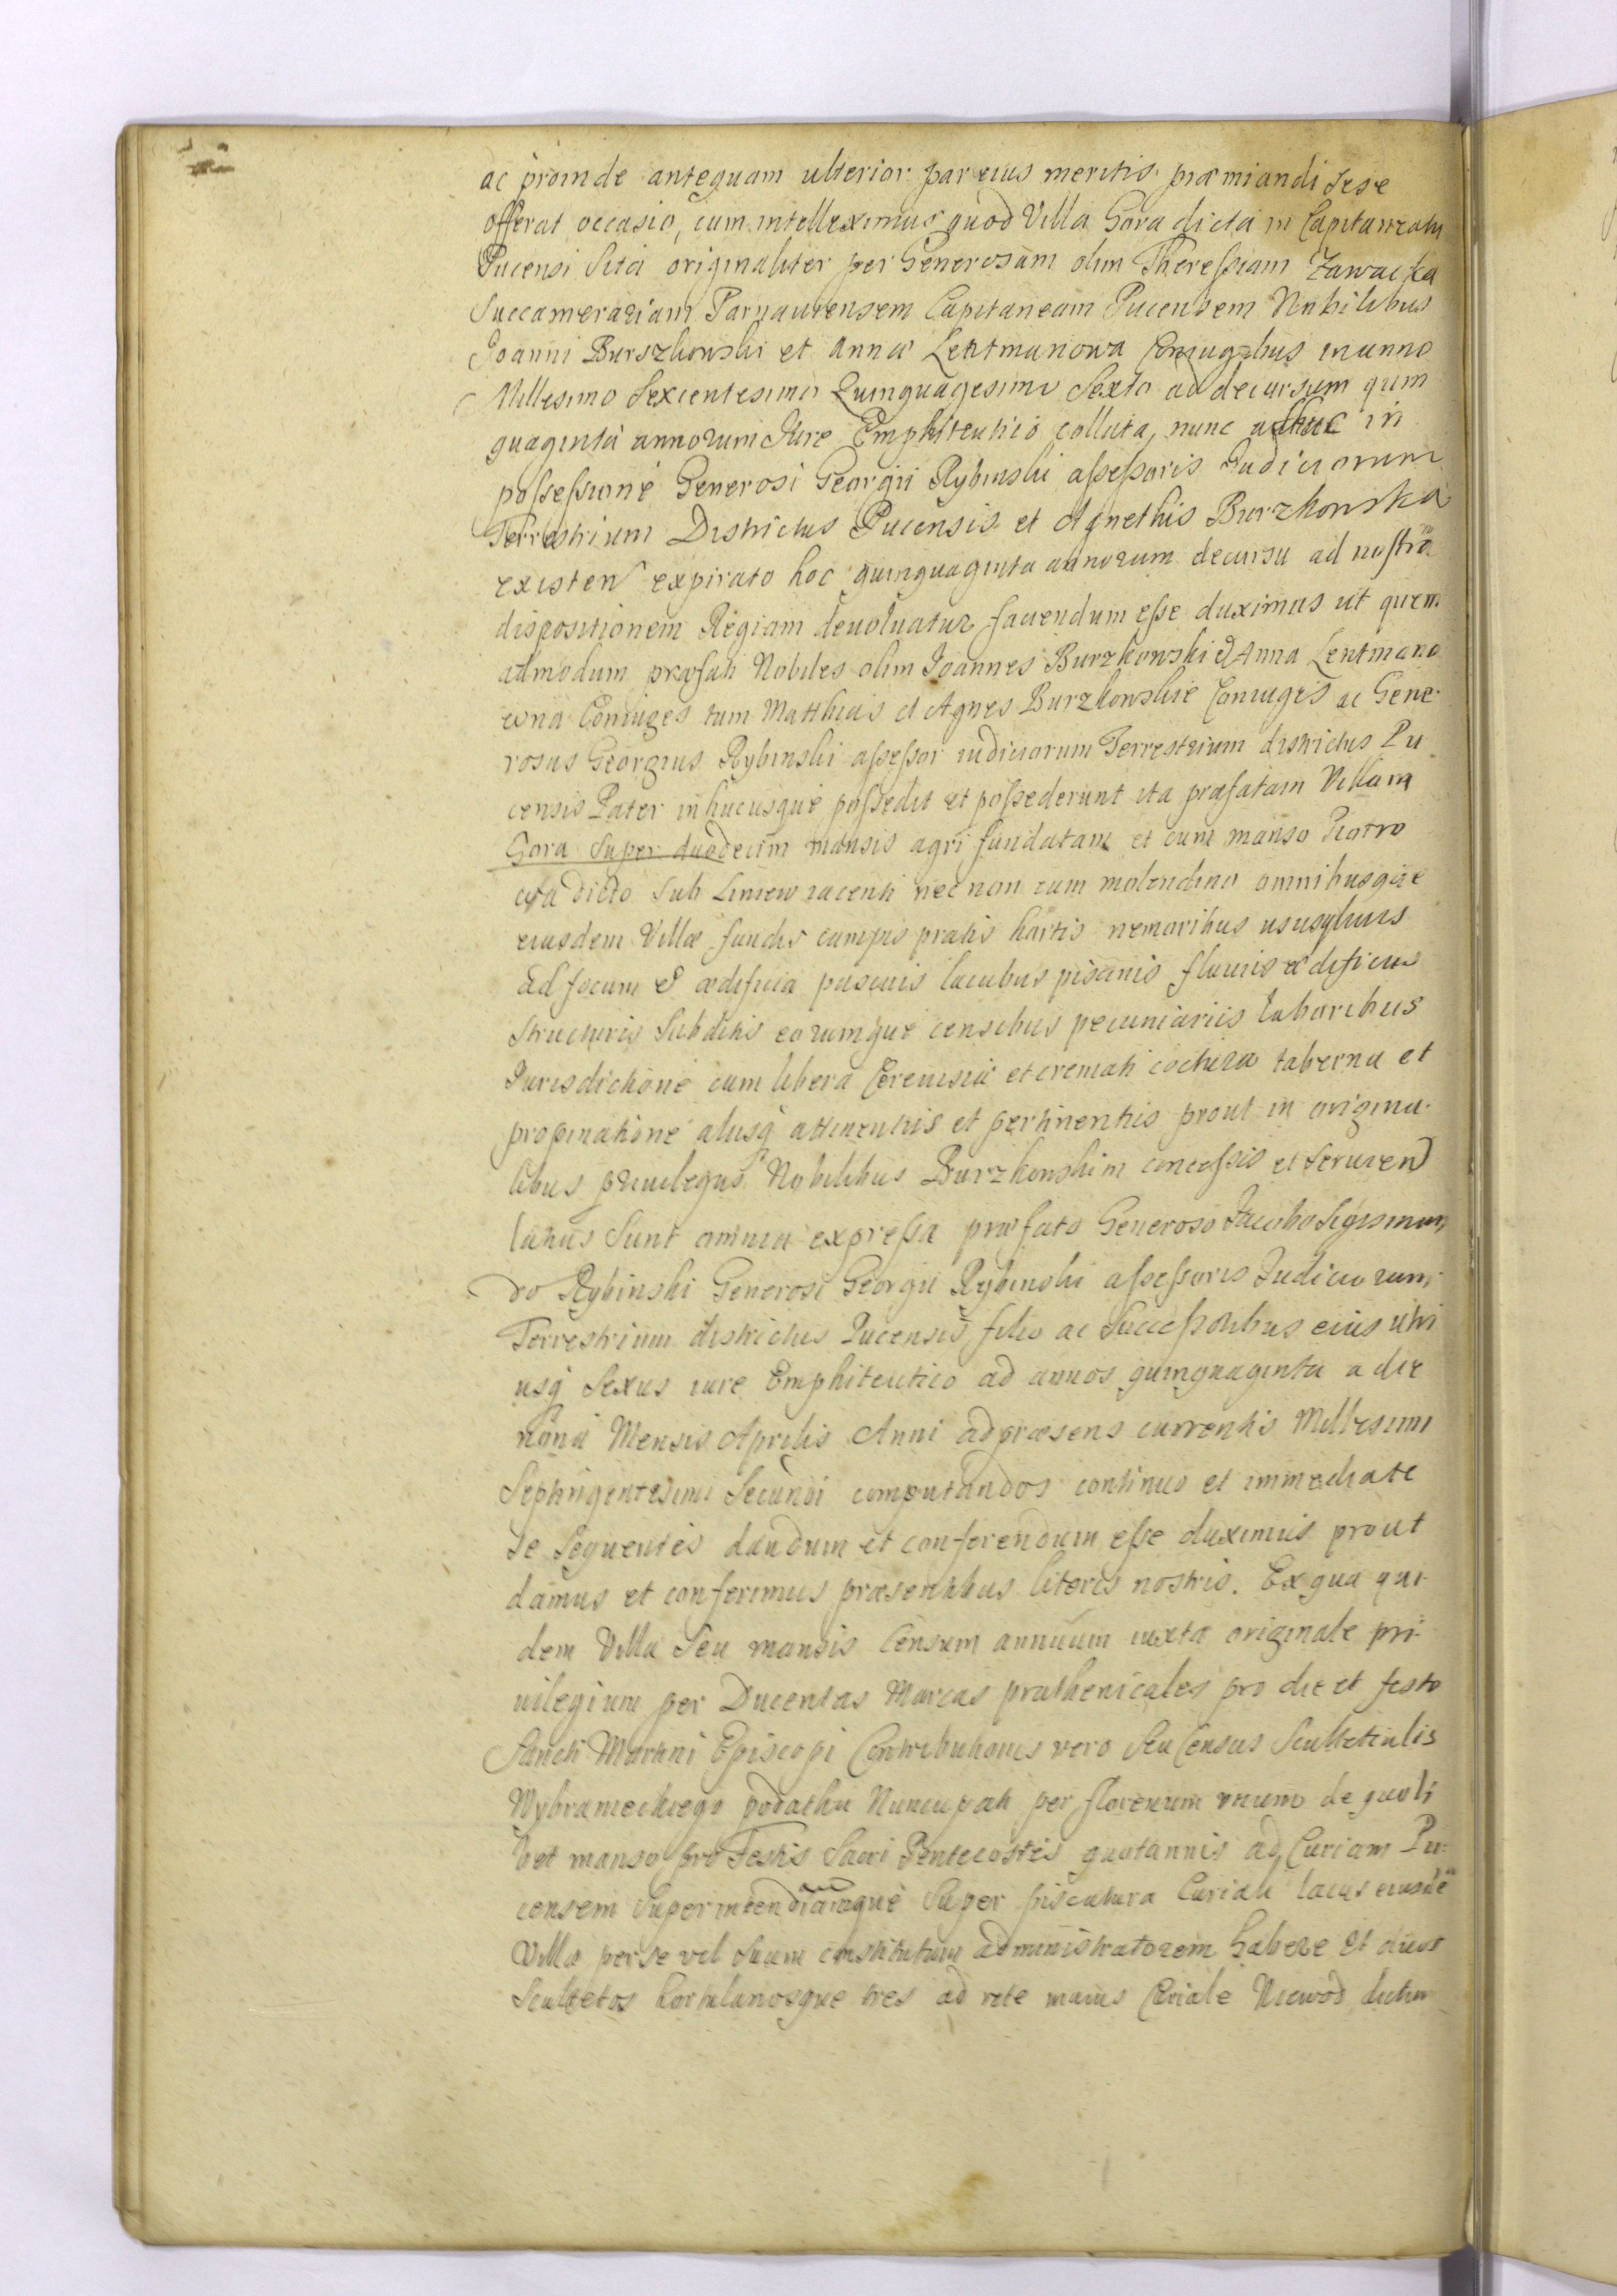 ac proinde antequam ulterior par eius meritis præmiandi sese
offerat occasio, cum intelleximus quod Villa Gora dicta in Capitaneatu
Pucensi Sita originaliter per Generosam olim Theressiam Zawacka
Succamerariam Parnauiensem Capitaneam Pucensem Nobilibus
Joanni Burszkowski et Annæ Lentmanowa Coniugibus in anno
Millesimo Sexcentesimo Quinquagesimo Sexto ad decursum quin
quaginta annorum Jure Emphiteutico collata, nunc adhuc in
possessione Generosi Georgii Rybinski assessoris Judiciorum
Terrestrium Districtus Pucensis et Agnethis Burzkowska
existen expirato hoc quinquaginta annorum decursu ad nostrã
dispositionem Regiam deuoluatur fauendum esse duximus ut quem
admodum præfati Nobiles olim Joannes Burzkowski & Anna Lentmano
wna Coniuges tum Matthias et Agnes Burzkowskie Coniuges ac Gene-
rosus Georgius Rybinski assessor iudiciorum Terrestrium districtus Pu
censis Pater in hucusque possedit et possederunt ita præfatam Villam
Gora super duodecim mansis agri fundatam et cum manso Piotro
dicto sub Liniew iacenti nec non cum molendino omnibusque
eiusdem Villæ fundis campis pratis hortis nemoribus usu syluis
ad focum & ædificia pascuis lacubus piscinis fluuiis ædificiis
structuris Subditis eorumque censibus pecuniariis laboribus
Jurisdictione cum libera Cereuisiæ et cremati coctura taberna et
propinatione aliisq attinentiis et pertinentiis prout in origina-
libus priuilegiis Nobilibus Burzkowskim concessis et seruien
Sunt omnia expressa præfato Generoso Jacobo Sigismun
do Rybinski Generosi Georgii Rybinski assessoris Judiciorum
Terrestrium districtus Pucensis filio ac Successoribus eius utri
usq Sexus iure Emphiteutico ad annos quinquaginta a die
nona Mensis Aprilis Anni ad præsens currentis Millesimi
Septingentesimi Secundi computandos continuo et immediate
se sequentes dandum et conferendum esse duximus prout
damus et conferimus præsentibus literis nostris. Ex qua qui-
dem Villa seu mansis Censum annuum iuxta originale pri-
uilegium per Ducentas Marcas pruthenicales pro die et festo
Sancti Martini Episcopi Contributionis vero seu Census Scultetialis
Wybranieckiego podathu Nuncupati per florenum unum de quoli
bet manso pro Festis Sacri Pentecostes quotannis ad Curiam Pu-
censem Superintendiamque Super piscatura Curiali lacus eiusdẽ
Villæ per se vel suum constitutum administratorem habere et duos
Scultetos hortulanosque tres ad rete maius Niewod dictum